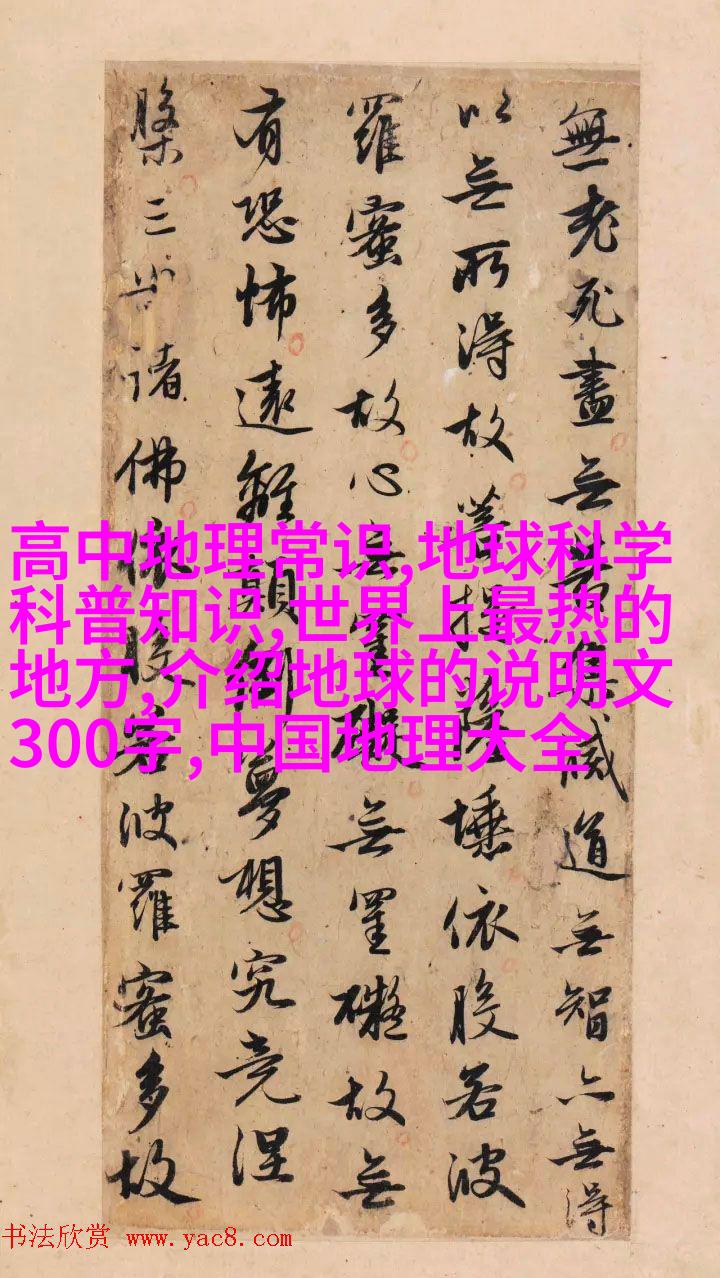 無老死盡无苦集滅道无智亦无得
以无所得故菩提薩埵依般若波
羅蜜多故心无罣礙无罣礙故无
有恐怖遠離顛倒夢想究竟涅
槃三世諸佛依般若波羅蜜多故
高中地理常识,地球科学
科普知识,世界上最热的
地方,介绍地球的说明文
300字,中国地理大全
书法欣赏 www.yac8.com